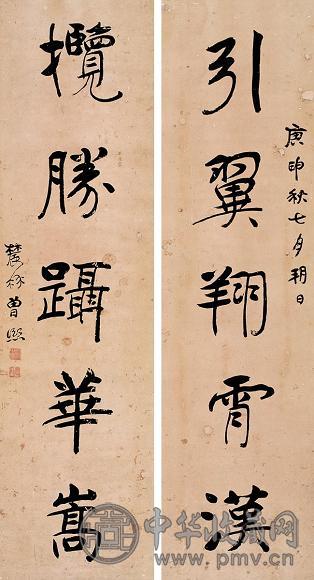 庚申秋七月朔日
引翼翔霄漢
攬勝躡華嵩
農髯曾熙
中华收藏网
www.pmv.cn